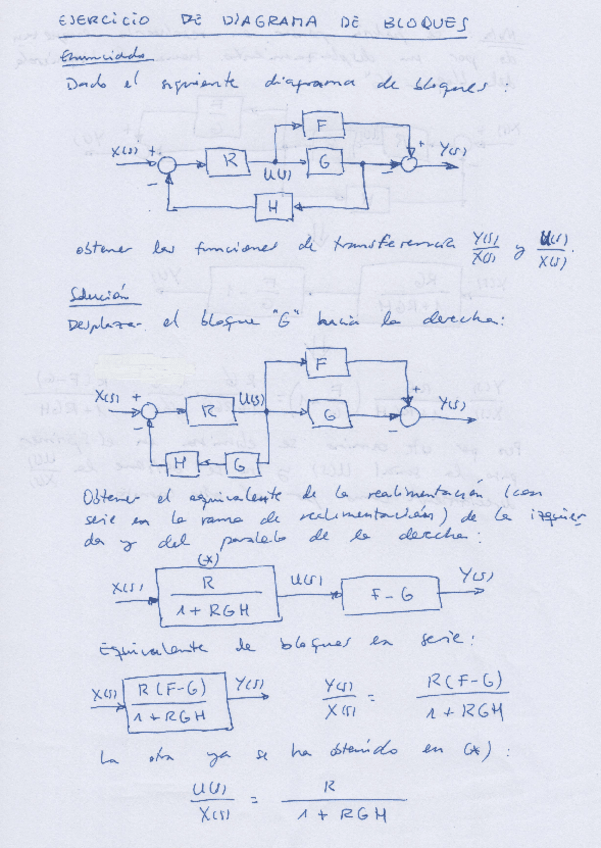 EJERCICIO DE DIAGRAMA DE BLOQUES
Enunciado
Dado el siguiente diagrama de bloques:
F
X(s) + R G + Y(s)
− U(s) −
H
obtener las funciones de transferencia Y(s)/X(s) y U(s)/X(s).
Solución
Desplazar el bloque "G" hacia la derecha:
F
X(s) + R U(s) G + Y(s)
− −
H G
Obtener el equivalente de la realimentación (con
serie en la rama de realimentación) de la izquier-
da y del paralelo de la derecha:
(*)
X(s) R/(1+RGH) U(s) F-G Y(s)
Equivalente de bloques en serie:
X(s) R(F-G)/(1+RGH) Y(s) Y(s)/X(s) = R(F-G)/(1+RGH)
La otra ya se ha obtenido en (*):
U(s)/X(s) = R/(1+RGH)